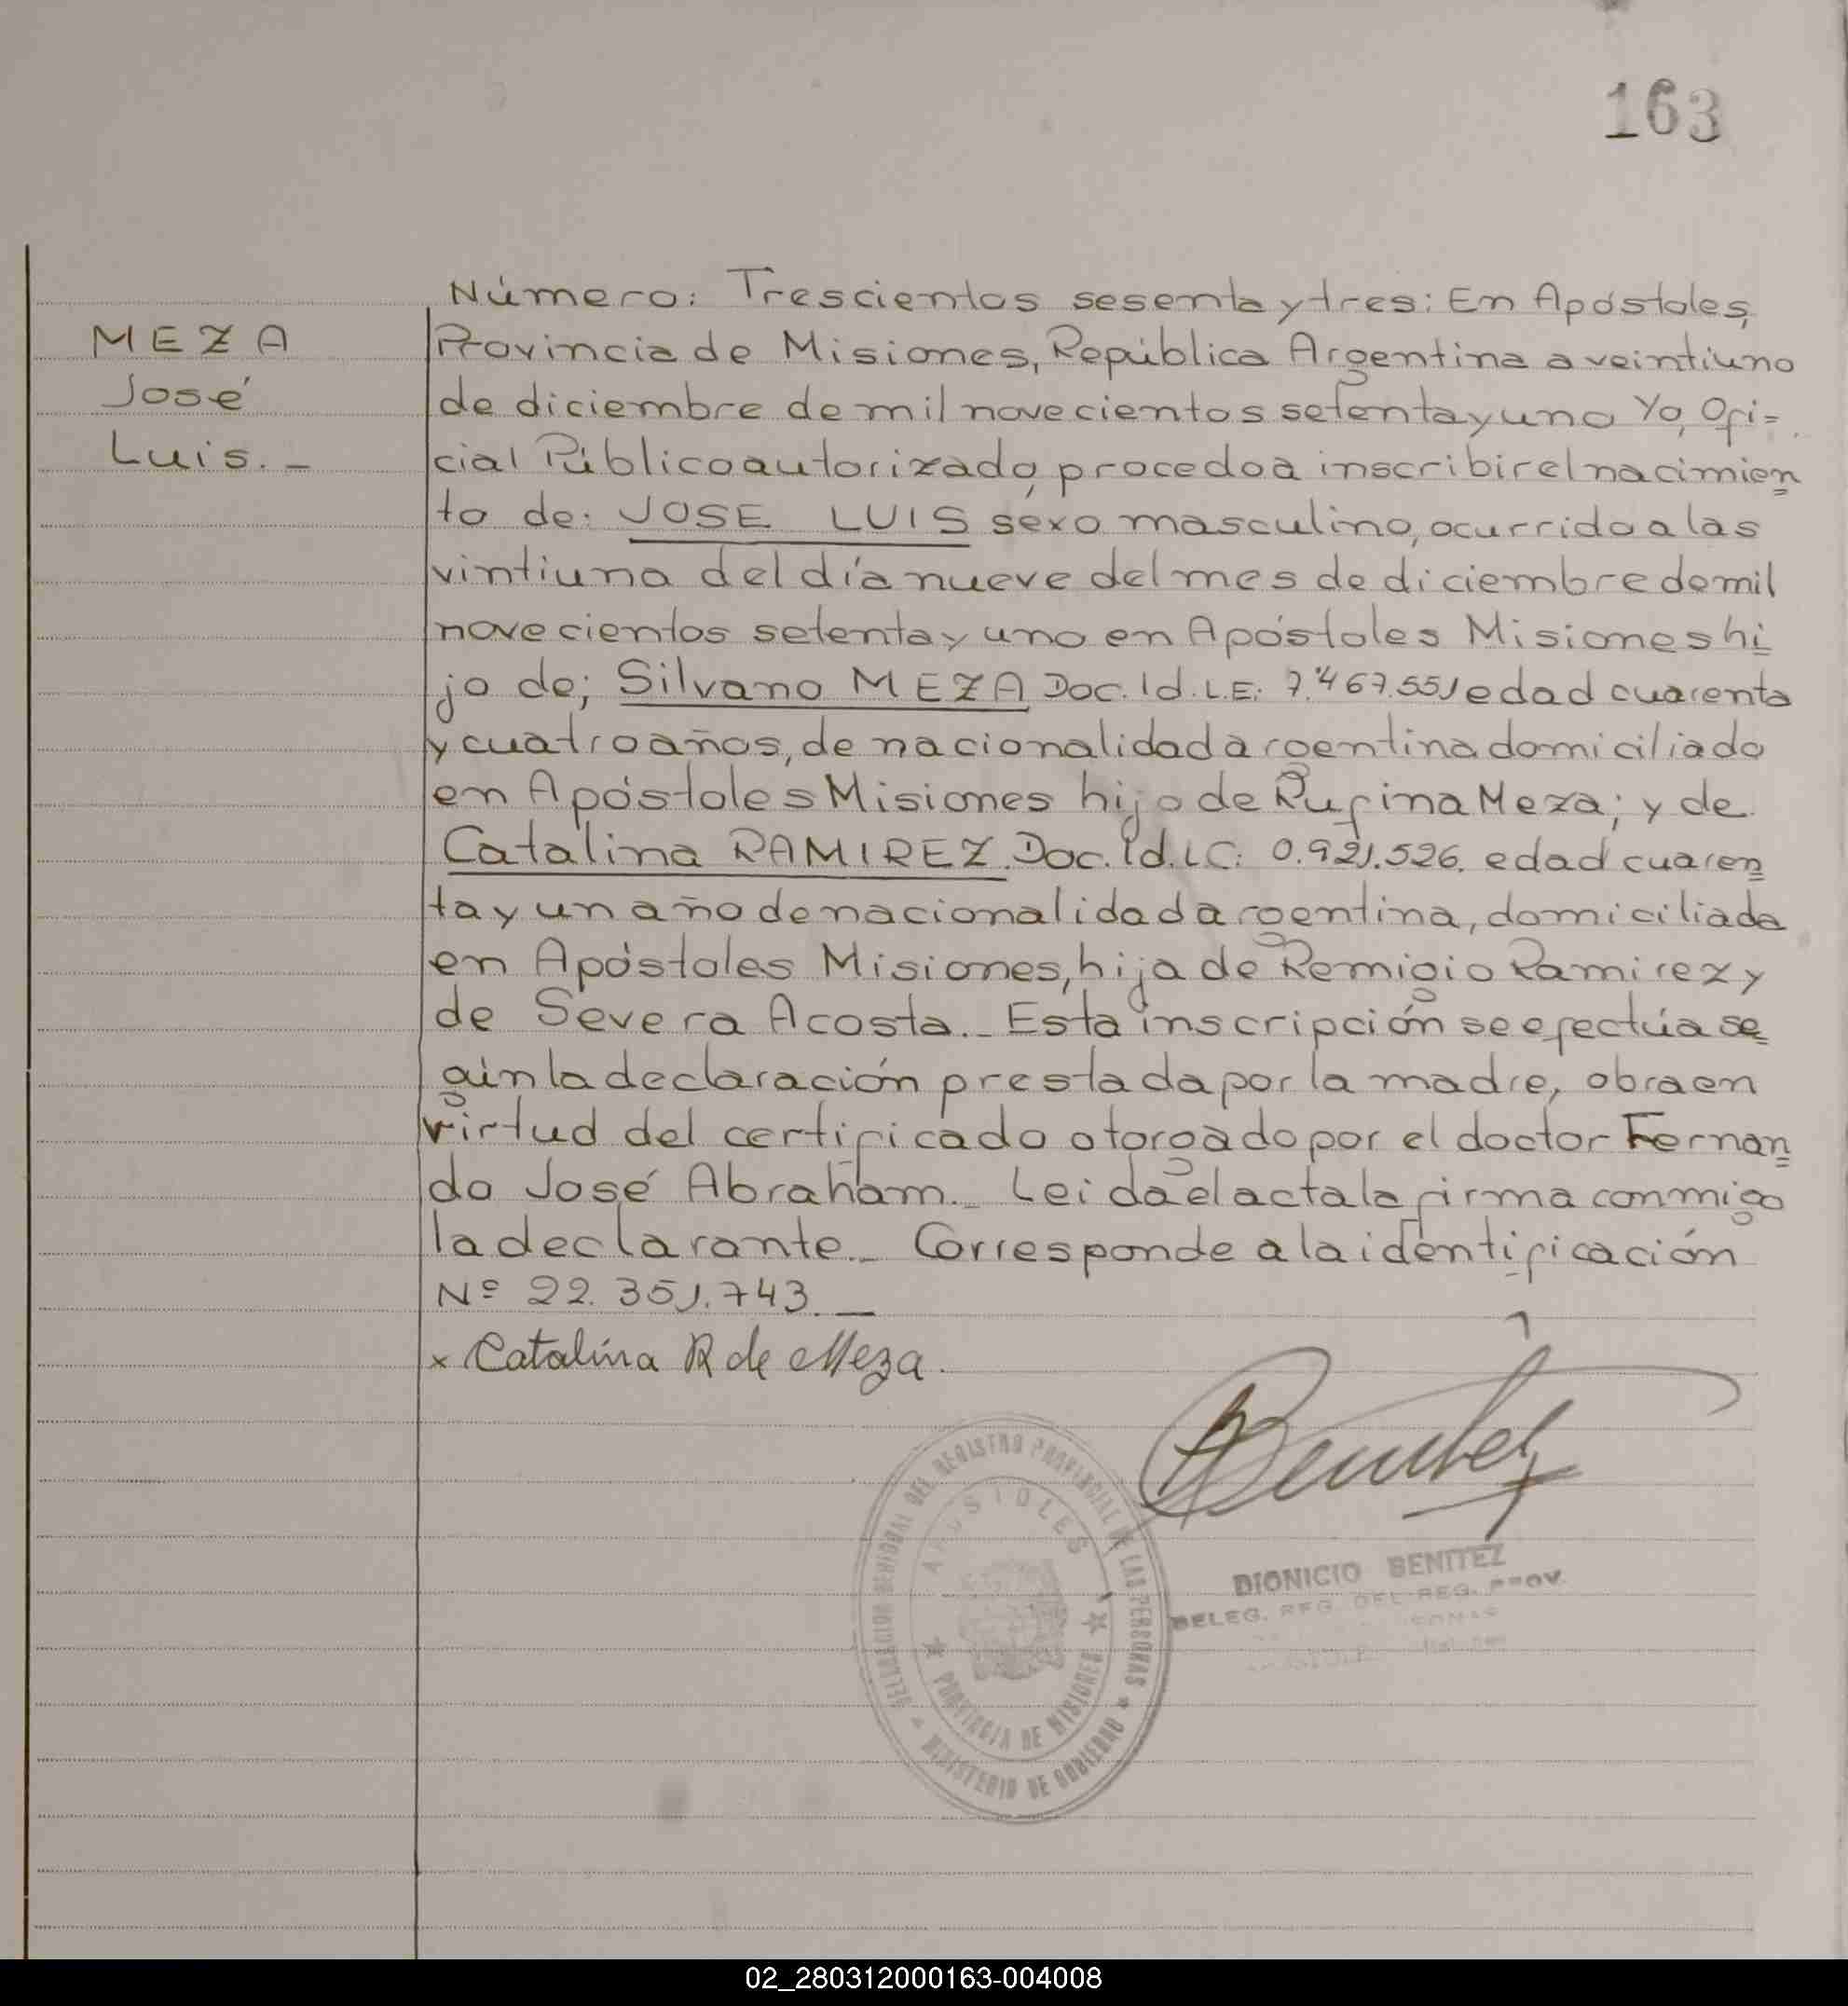 163
Número: Trescientos sesenta y tres: En Apóstoles,
MEZA
Provincia de Misiones, República Argentina a veintiuno
José
de diciembre de mil novecientos setenta y uno Yo, Ofi=
Luis.-
cial Público autorizado, procedo a inscribir el nacimien
to de: JOSE LUIS sexo masculino, ocurrido a las
vintiuna del día nueve del mes de diciembre de mil
novecientos setenta y uno en Apóstoles Misiones hi
jo de; Silvano MEZA Doc. Id. L.E: 7.467.551 edad cuarenta
y cuatro años, de nacionalidad argentina domiciliado
en Apóstoles Misiones hijo de Rufina Meza; y de
Catalina RAMIREZ. Doc. Id. L.C: 0.921.526. edad cuaren
ta y un año de nacionalidad argentina, domiciliada
en Apóstoles Misiones, hija de Remigio Ramirez y
de Severa Acosta._ Esta inscripción se efectúa se
gún la declaración prestada por la madre, obra en
virtud del certificado otorgado por el doctor Fernan
do José Abraham._ Leida el acta la firma conmigo
la declarante._ Corresponde a la identificación
Nº 22.351.743._
x Catalina R de Meza.
Benitez
DELEGACION SECCIONAL DEL REGISTRO PROVINCIAL DE LAS PERSONAS
APOSTOLES
PROVINCIA DE MISIONES
MINISTERIO DE GOBIERNO
DIONICIO BENITEZ
DELEG. REG. DEL REG. PROV.
02_280312000163-004008